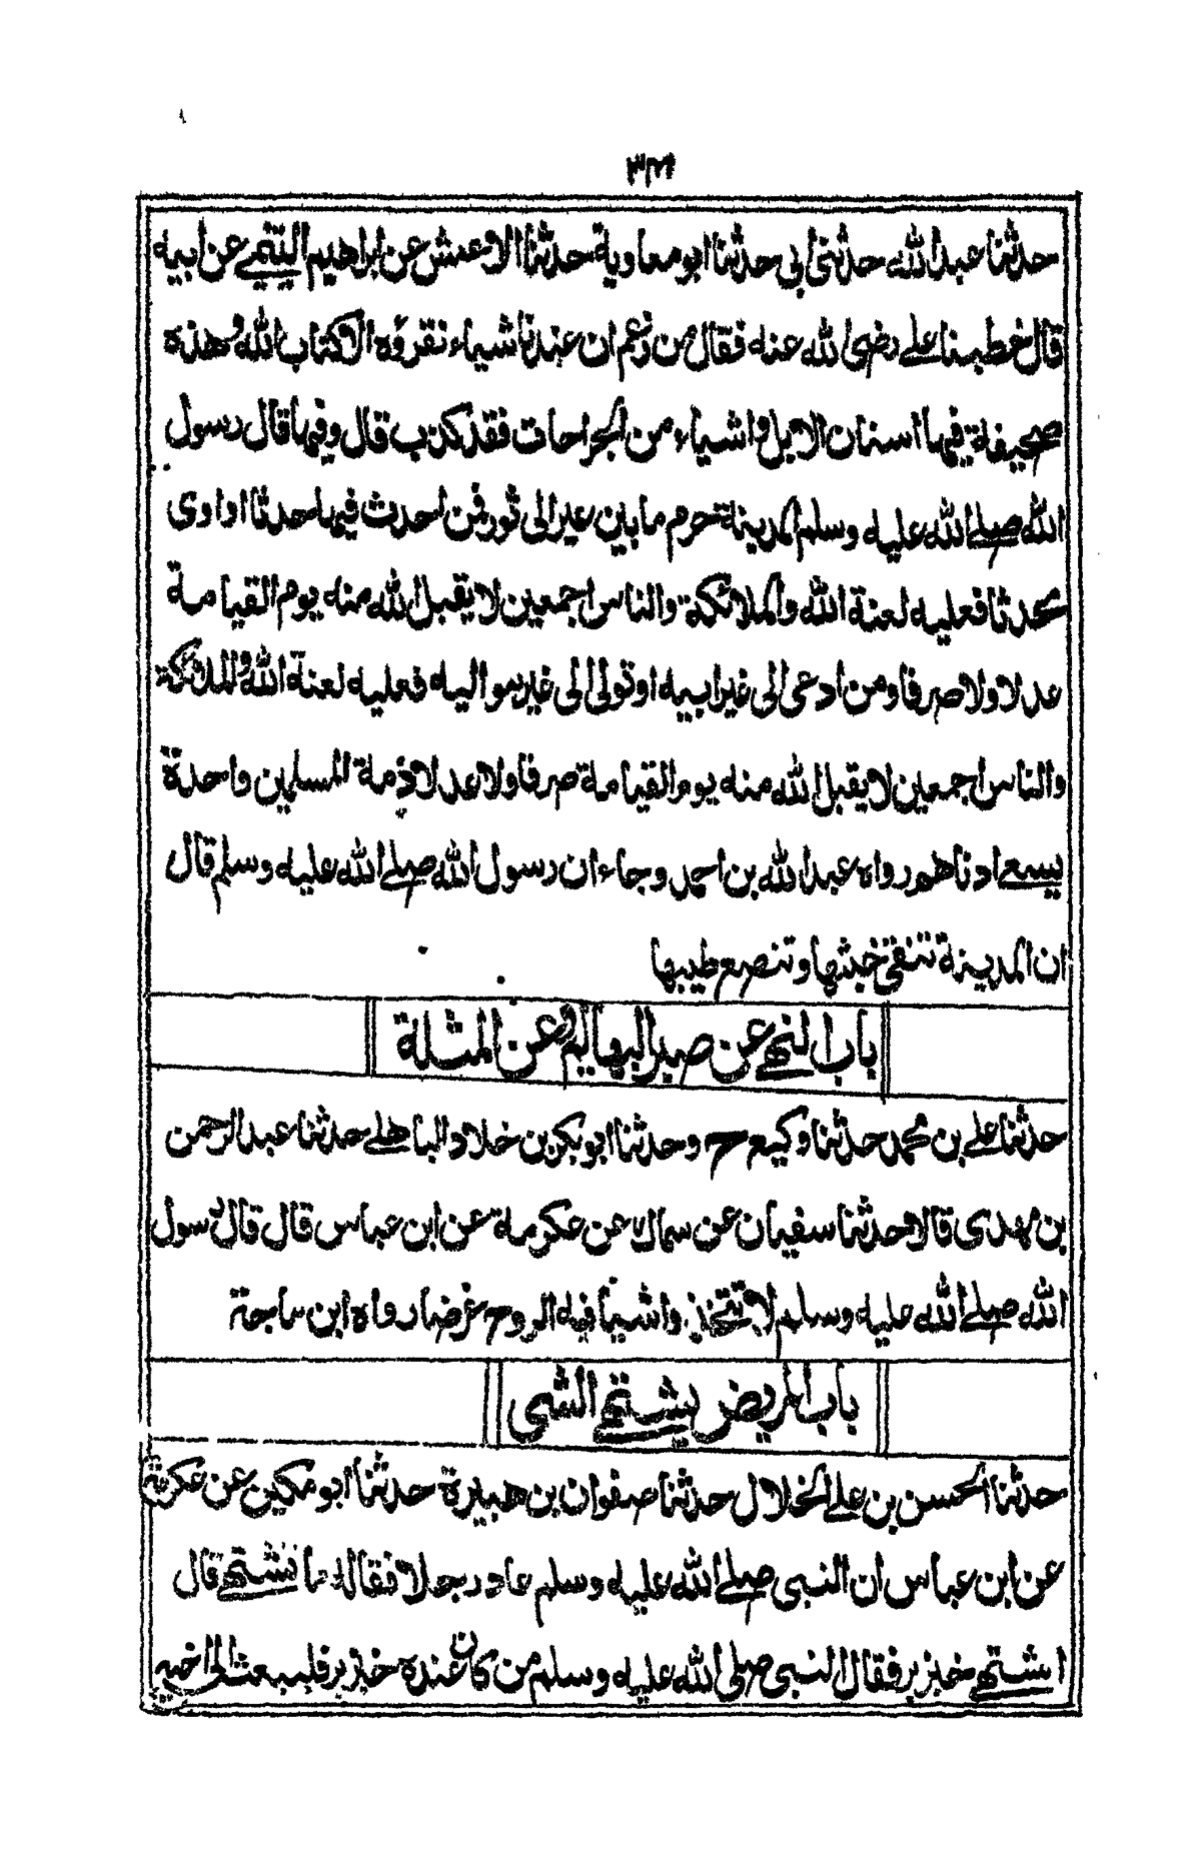 حدثنا عبد الله حدثنى ابى حدثنا ابو معاوية حدثنا الاعمش عن ابراهيم التيمى عن ابيه
قال خطبنا على رضى الله عنه فقال من زعم ان عندنا شياء نقروه الا كتاب الله وهذه
صحيفة فيها اسنان الابل واشياء من الجراحات فقد كذب قال وفيها قال رسول
الله صلى الله عليه وسلم المدينة حرم ما بين عير الى ثور فمن احدث فيها حدثا او اوى
محدثا فعليه لعنة الله والملائكة والناس اجمعين لا يقبل الله منه يوم القيامة
عدلا ولا صرفا ومن ادعى الى غير ابيه او تولى الى غير مواليه فعليه لعنة الله والملائكة
والناس اجمعين لا يقبل الله منه يوم القيامة صرفا ولا عدلا ذمة المسلمين واحدة
يسعى ادناهم رواه عبد الله بن احمد وجاء ان رسول الله صلى الله عليه وسلم قال
ان المدينة تنفى خبثها وتنصع طيبها
باب النهى عن صبر البهايم وعن المثلة
حدثنا على بن محمد حدثنا وكيع ح وحدثنا ابو بكر بن خلاد الباهلى حدثنا عبد الرحمن
بن مهدى قالا حدثنا سفيان عن سماك عن عكرمة عن ابن عباس قال قال رسول
الله صلى الله عليه وسلم لا تتخذوا شيئا فيه الروح غرضا رواه ابن ماجة
باب المريض يشتهى الشى
حدثنا الحسن بن على الخلال حدثنا صفوان بن هبيرة حدثنا ابو مكين عن عكرمة
عن ابن عباس ان النبى صلى الله عليه وسلم عاد رجلا فقال له ما تشتهى قال
اشتهى خبز بر فقال النبى صلى الله عليه وسلم من كان عنده خبز بر فليبعث الى اخيه